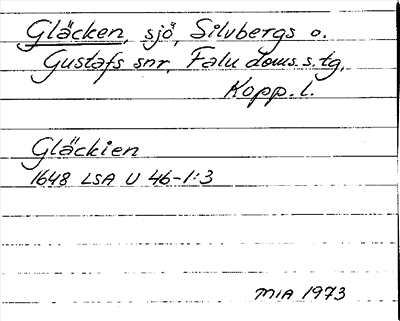 Gläcken, sjö, Silvbergs o.
Gustafs snr, Falu doms.s.tg,
Kopp.l.
Gläckien
1648 LSA U 46-1:3
MIA 1973